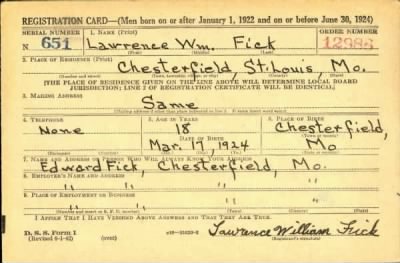 REGISTRATION CARD—(Men born on or after January 1, 1922 and on or before June 30, 1924)
SERIAL NUMBER 1. NAME (Print) ORDER NUMBER
N 651 Lawrence Wm. Fick 12986
2. PLACE OF RESIDENCE (Print)
Chesterfield, St. Louis, Mo.
(THE PLACE OF RESIDENCE GIVEN ON THE LINE ABOVE WILL DETERMINE LOCAL BOARD
JURISDICTION; LINE 2 OF REGISTRATION CERTIFICATE WILL BE IDENTICAL)
3. MAILING ADDRESS
Same
4. TELEPHONE 5. AGE IN YEARS 6. PLACE OF BIRTH
None 18 Chesterfield,
DATE OF BIRTH
Mar. 17, 1924 Mo
7. NAME AND ADDRESS OF PERSON WHO WILL ALWAYS KNOW YOUR ADDRESS
Edward Fick, Chesterfield, Mo.
8. EMPLOYER'S NAME AND ADDRESS
" " "
9. PLACE OF EMPLOYMENT OR BUSINESS
" " "
I AFFIRM THAT I HAVE VERIFIED ABOVE ANSWERS AND THAT THEY ARE TRUE.
D. S. S. Form 1
(Revised 6-1-42) (over) Lawrence William Fick
(Registrant's signature)